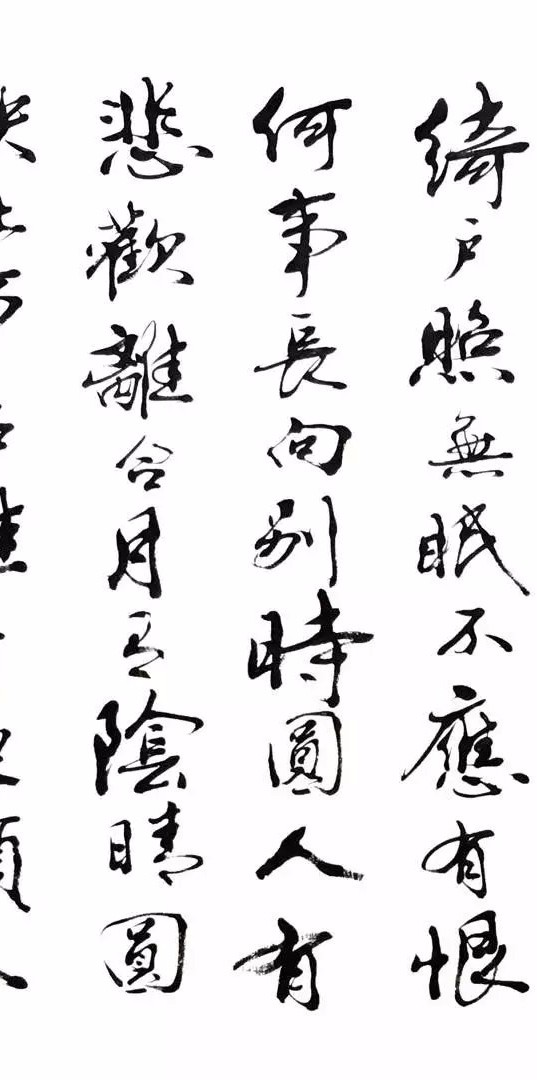 綺戶照無眠不應有恨
何事長向別時圓人有
悲歡離合月有陰晴圓